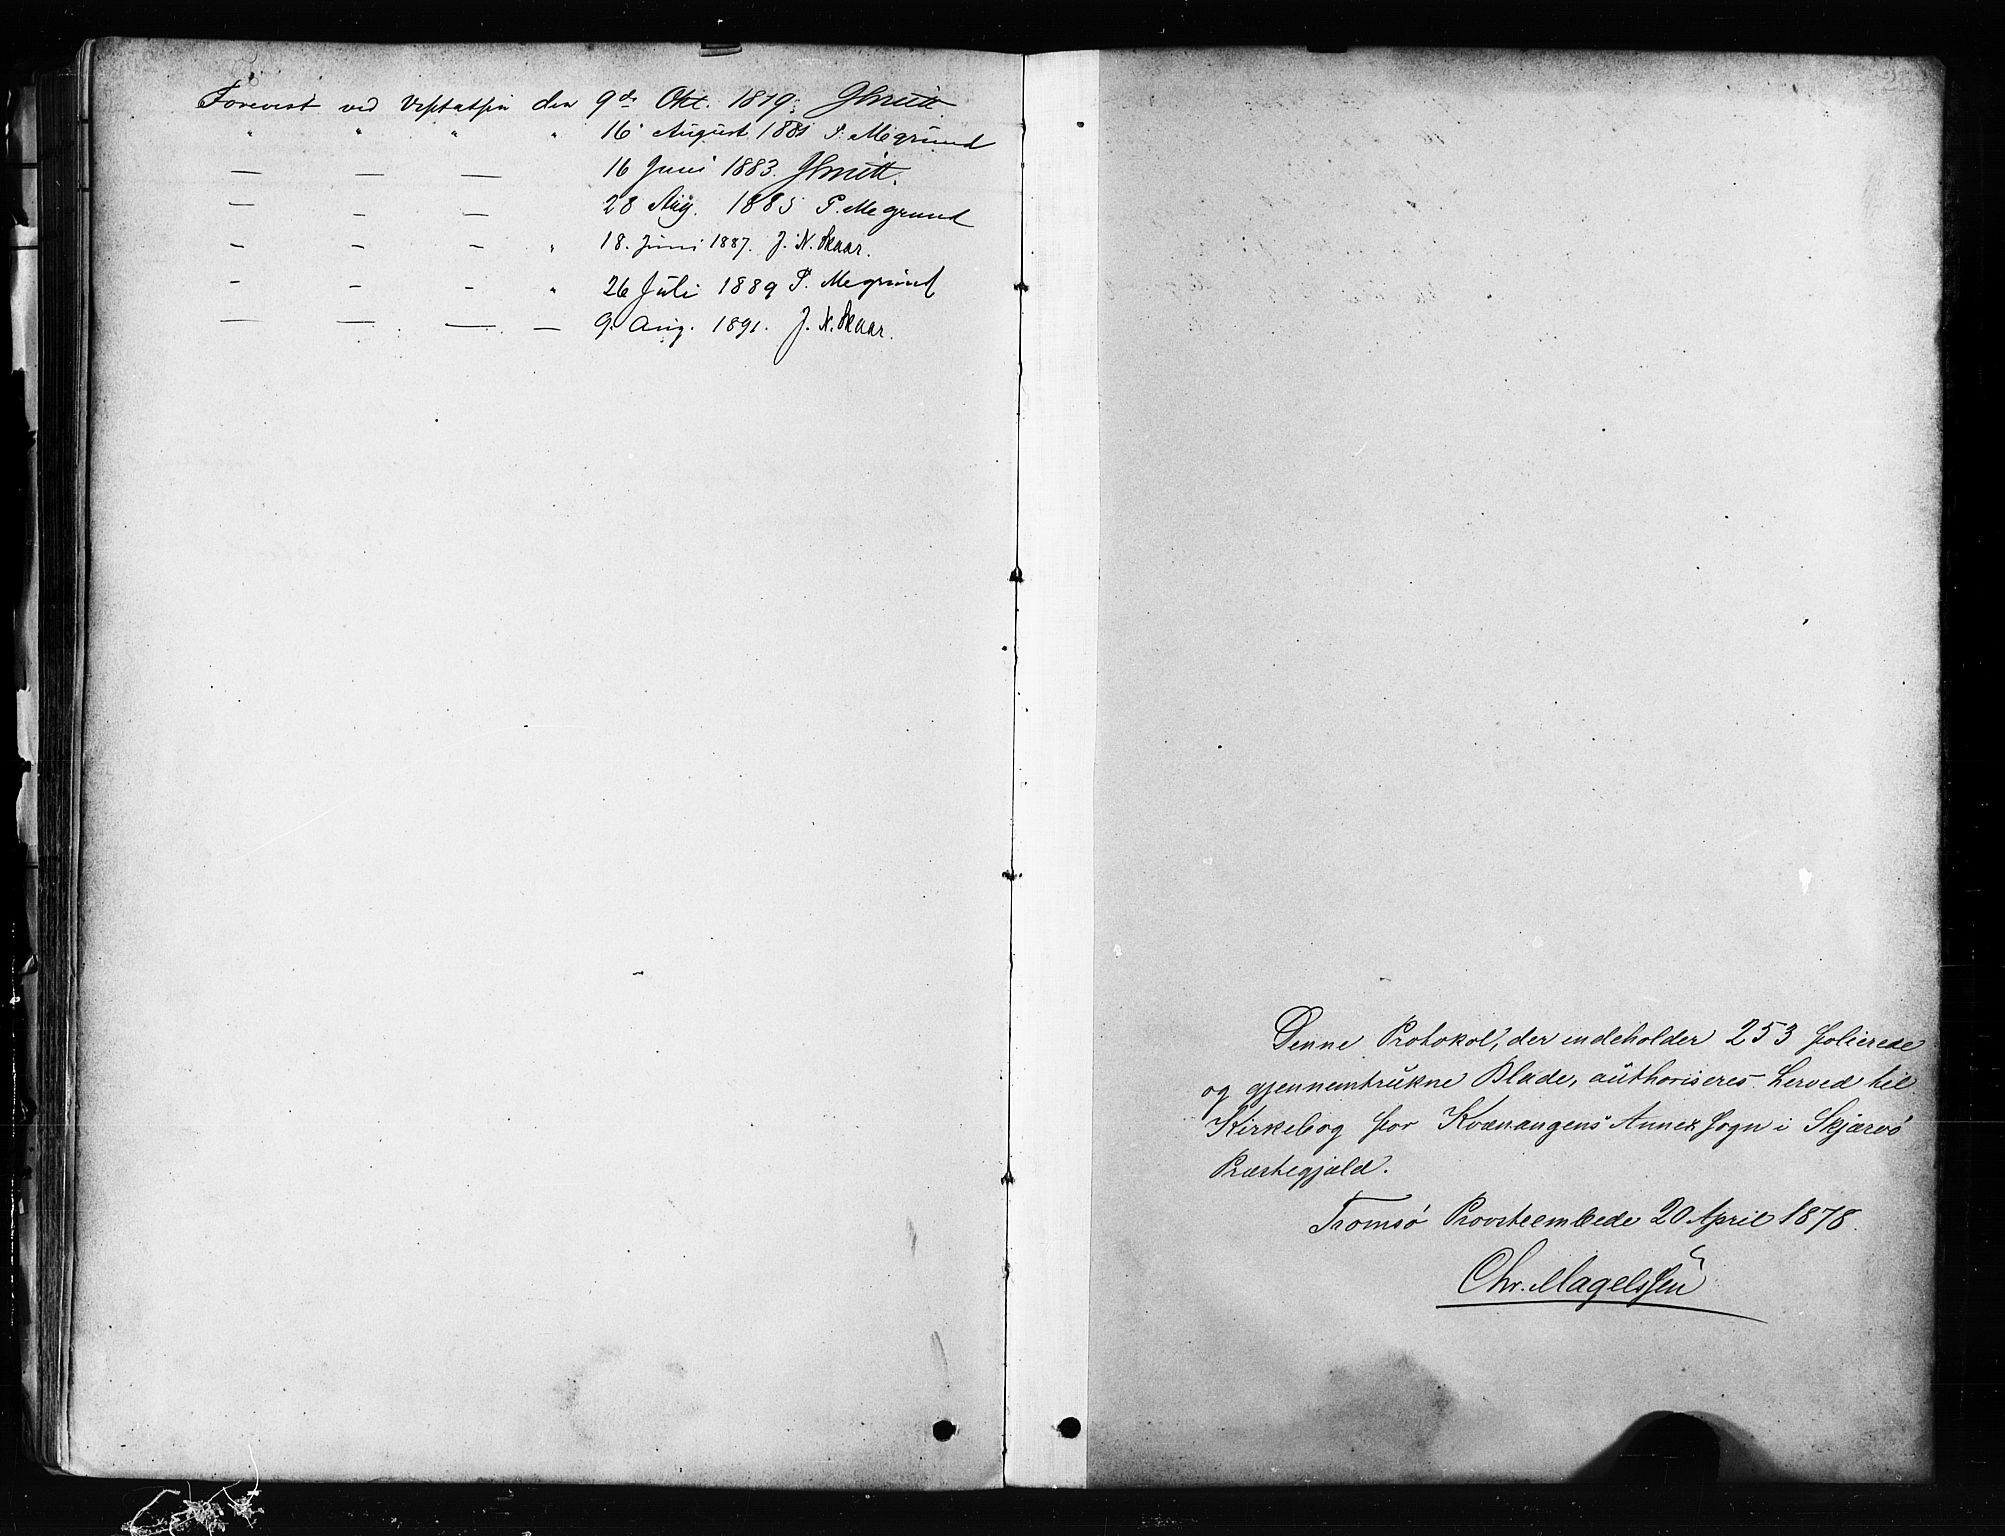 Forevist ved Visitatsen den 9de Okt. 1879. JSmitt.
" " " " 16 August 1881 P. Mcgrund
— — — " 16 Juni 1883. JSmitt.
— — — 28 Aug. 1885 P. Mcgrund
- - - " 18. Juni 1887. J. N. Skaar.
- - - " 26 Juli 1889 P. Mcgrund
— — — — 9. Aug. 1891. J. N. Skaar.
Denne Protokol, der indeholder 253 folierede
og gjennemtrukne Blade, authoriseres herved til
Kirkebog for Kvænangens Annex Sogn i Skjærvø
Præstegjæld.
Tromsø Provsteembede 20 April 1878.
Chr. Magelssen